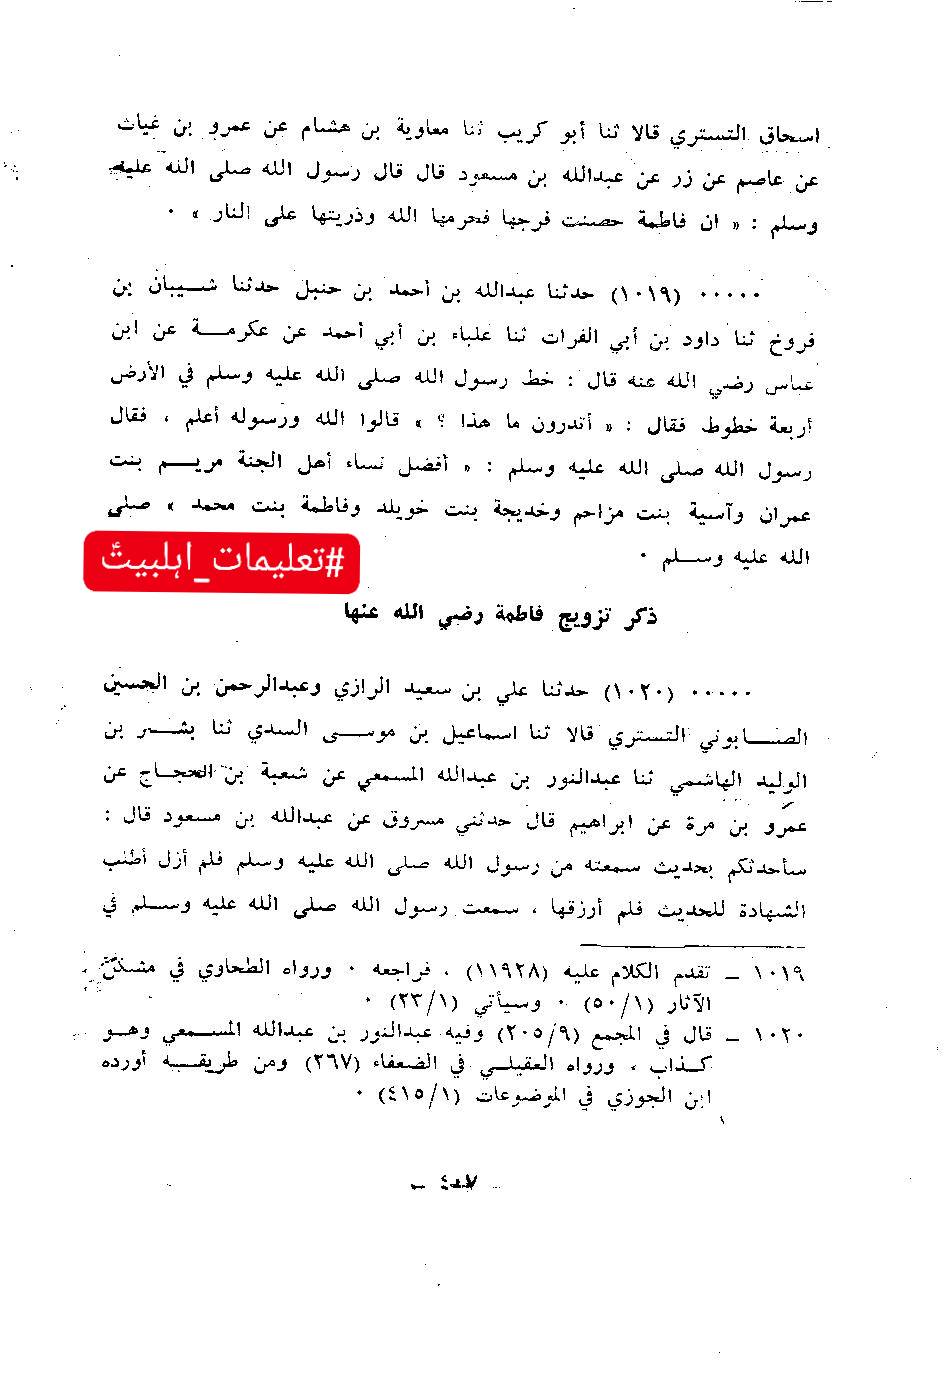 اسحاق التستري قالا ثنا أبو كريب ثنا معاوية بن هشام عن عمرو بن غياث
عن عاصم عن زر عن عبدالله بن مسعود قال قال رسول الله صلى الله عليه
وسلم : « ان فاطمة حصنت فرجها فحرمها الله وذريتها على النار » ٠
٠٠٠٠٠ (١٠١٩) حدثنا عبدالله بن أحمد بن حنبل حدثنا شيبان بن
فروخ ثنا داود بن أبي الفرات ثنا علباء بن أبي أحمد عن عكرمة عن ابن
عباس رضي الله عنه قال : خط رسول الله صلى الله عليه وسلم في الأرض
أربعة خطوط فقال : « أتدرون ما هذا ؟ » قالوا الله ورسوله أعلم ، فقال
رسول الله صلى الله عليه وسلم : « أفضل نساء أهل الجنة مريم بنت
عمران وآسية بنت مزاحم وخديجة بنت خويلد وفاطمة بنت محمد » صلى
الله عليه وسلم ٠
#تعليمات_اہلبیتؑ
ذكر تزويج فاطمة رضي الله عنها
٠٠٠٠٠ (١٠٢٠) حدثنا علي بن سعيد الرازي وعبدالرحمن بن الحسين
الصابوني التستري قالا ثنا اسماعيل بن موسى السدي ثنا بشر بن
الوليد الهاشمي ثنا عبدالنور بن عبدالله المسمعي عن شعبة بن الحجاج عن
عمرو بن مرة عن ابراهيم قال حدثني مسروق عن عبدالله بن مسعود قال :
سأحدثكم بحديث سمعته من رسول الله صلى الله عليه وسلم فلم أزل أطلب
الشهادة للحديث فلم أرزقها ، سمعت رسول الله صلى الله عليه وسلم في
١٠١٩ ــ تقدم الكلام عليه (١١٩٢٨) ، فراجعه ٠ ورواه الطحاوي في مشكل
الآثار (٥٠/١) ٠ وسيأتي (٢٣/١) ٠
١٠٢٠ ــ قال في المجمع (٢٠٥/٩) وفيه عبدالنور بن عبدالله المسمعي وهو
كذاب ، ورواه العقيلي في الضعفاء (٢٦٧) ومن طريقه أورده
ابن الجوزي في الموضوعات (٤١٥/١) ٠